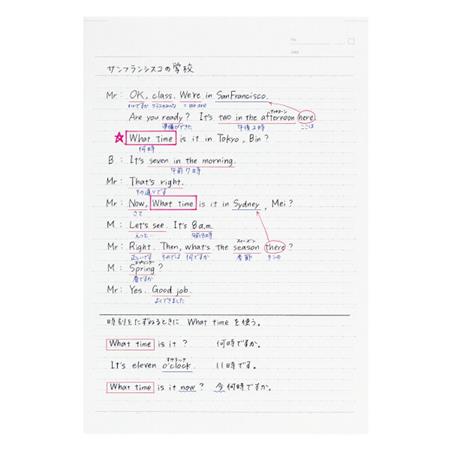 No.
Date
サンフランシスコの学校
Mr: OK, class. We're in San Francisco.
いいですか クラスのみなさん = We are
アフタヌーン
Are you ready? It's two in the afternoon here.
準備ができた 午後2時 ここは
☆ What time is it in Tokyo, Bin?
何時
B: It's seven in the morning.
午前7時
Mr: That's right.
その通りです
Mr: Now, What time is it in Sydney, Mei?
さて
M: Let's see. It's 8 a.m.
ええっと 午前8時
Mr: Right. Then, what's the season there?
正しいです それでは 何ですか 季節
M: Spring?
春ですか
Mr: Yes. Good job.
よくできました
時刻をたずねるときに What time を使う。
What time is it? 何時ですか。
It's eleven o'clock. 11時です。
What time is it now? 今何時ですか。